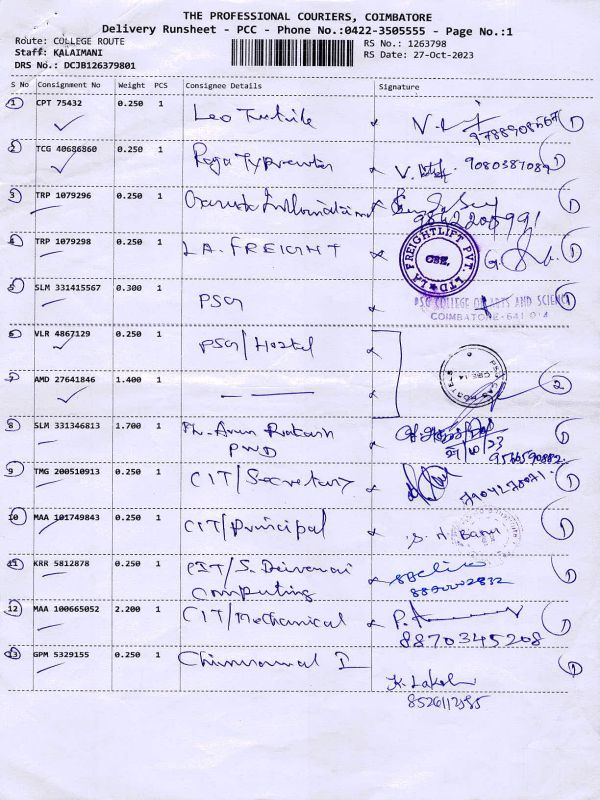 THE PROFESSIONAL COURIERS, COIMBATORE
Delivery Runsheet - PCC - Phone No.:0422-3505555 - Page No.:1
Route: COLLEGE ROUTE
RS No.: 1263798
Staff: KALAIMANI
RS Date: 27-Oct-2023
DRS No.: DCJB126379801
S No Consignment No Weight PCS Consignee Details Signature
1 CPT 75432 0.250 1 Leo 9788908567 1
2 TCG 40686860 0.250 1 Raga Typewriter V. 9080387089 1
3 TRP 1079296 0.250 1 Information 1
9842205991
4 TRP 1079298 0.250 1 L.A. FREIGHT LA FREIGHTLIFT PVT. LTD CBE. 1
5 SLM 331415567 0.300 1 PSG PSG COLLEGE OF ARTS AND SCIENCE 1
COIMBATORE-641 014
6 VLR 4867129 0.250 1 PSG/Hostel
7 AMD 27641846 1.400 1 2
8 SLM 331346813 1.700 1 Arun Prakash
PWD 27/10/23
9566590882
9 TMG 200510913 0.250 1 CIT/Secretary 1
10 MAA 101749843 0.250 1 CIT/Principal 1
11 KRR 5812878 0.250 1 CIT/S. Deivanai 1
Computing 8890002832
12 MAA 100665052 2.200 1 CIT/Mechanical P. 1
8870345208
13 GPM 5329155 0.250 1 1
K. Laksh
8526112585